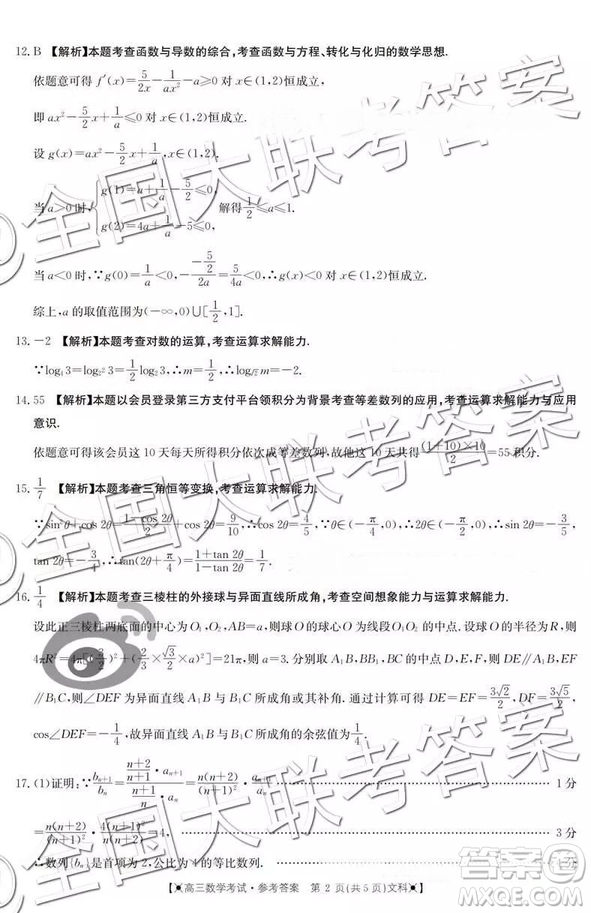 12. B 【解析】本题考查函数与导数的综合,考查函数与方程、转化与化归的数学思想.
依题意可得 f′(x)=5/(2x)-1/(ax²)-a≥0 对 x∈(1,2)恒成立,
即 ax²-(5/2)x+1/a≤0 对 x∈(1,2)恒成立.
设 g(x)=ax²-(5/2)x+1/a,
当 a>0 时, { g(1)=a+1/a-5/2≤0, g(2)=4a+1/a-5≤0, 解得 1/2≤a≤1.
当 a<0 时,∵g(0)=1/a<0, -(-5/2)/(2a)=5/(4a)<0,∴g(x)<0 对 x∈(1,2)恒成立.
综上,a 的取值范围为(-∞,0)∪[1/2,1].
13. -2 【解析】本题考查对数的运算,考查运算求解能力.
14. 55 【解析】本题以会员登录第三方支付平台领积分为背景考查等差数列的应用,考查运算求解能力与应用
意识.
依题意可得该会员这 10 天每天所得积分依次成等差数列,故他这 10 天共得 (1+10)×10/2=55 积分.
15. 1/7 【解析】本题考查三角恒等变换,考查运算求解能力.
∵sin²θ+cos 2θ=(1-cos 2θ)/2+cos 2θ=9/10,∴cos 2θ=4/5.∵θ∈(-π/4,0),∴2θ∈(-π/2,0),∴sin 2θ=-3/5,
tan 2θ=-3/4,∴tan(2θ+π/4)=(1+tan 2θ)/(1-tan 2θ)=1/7.
16. 1/4 【解析】本题考查三棱柱的外接球与异面直线所成角,考查空间想象能力与运算求解能力.
设此正三棱柱两底面的中心为 O₁,O₂,AB=a,则球 O 的球心 O 为线段 O₁O₂ 的中点.设球 O 的半径为 R,
则 4πR²=4π[(3/2)²+(2/3×√3/2×a)²]=21π,则 a=3.分别取 A₁B₁,BB₁,BC 的中点 D,E,F,则 DE∥A₁B,EF
∥B₁C,则∠DEF 为异面直线 A₁B 与 B₁C 所成角或其补角.易得 DE=EF=3√2/2,DF=3√5/2,
cos∠DEF=-1/4,故异面直线 A₁B 与 B₁C 所成角的余弦值为 1/4.
17. (1)证明:
∴数列{bₙ}是首项为 2,公比为 4 的等比数列.
【高三数学考试·参考答案 第 2 页(共 5 页)文科】
全国大联考答案